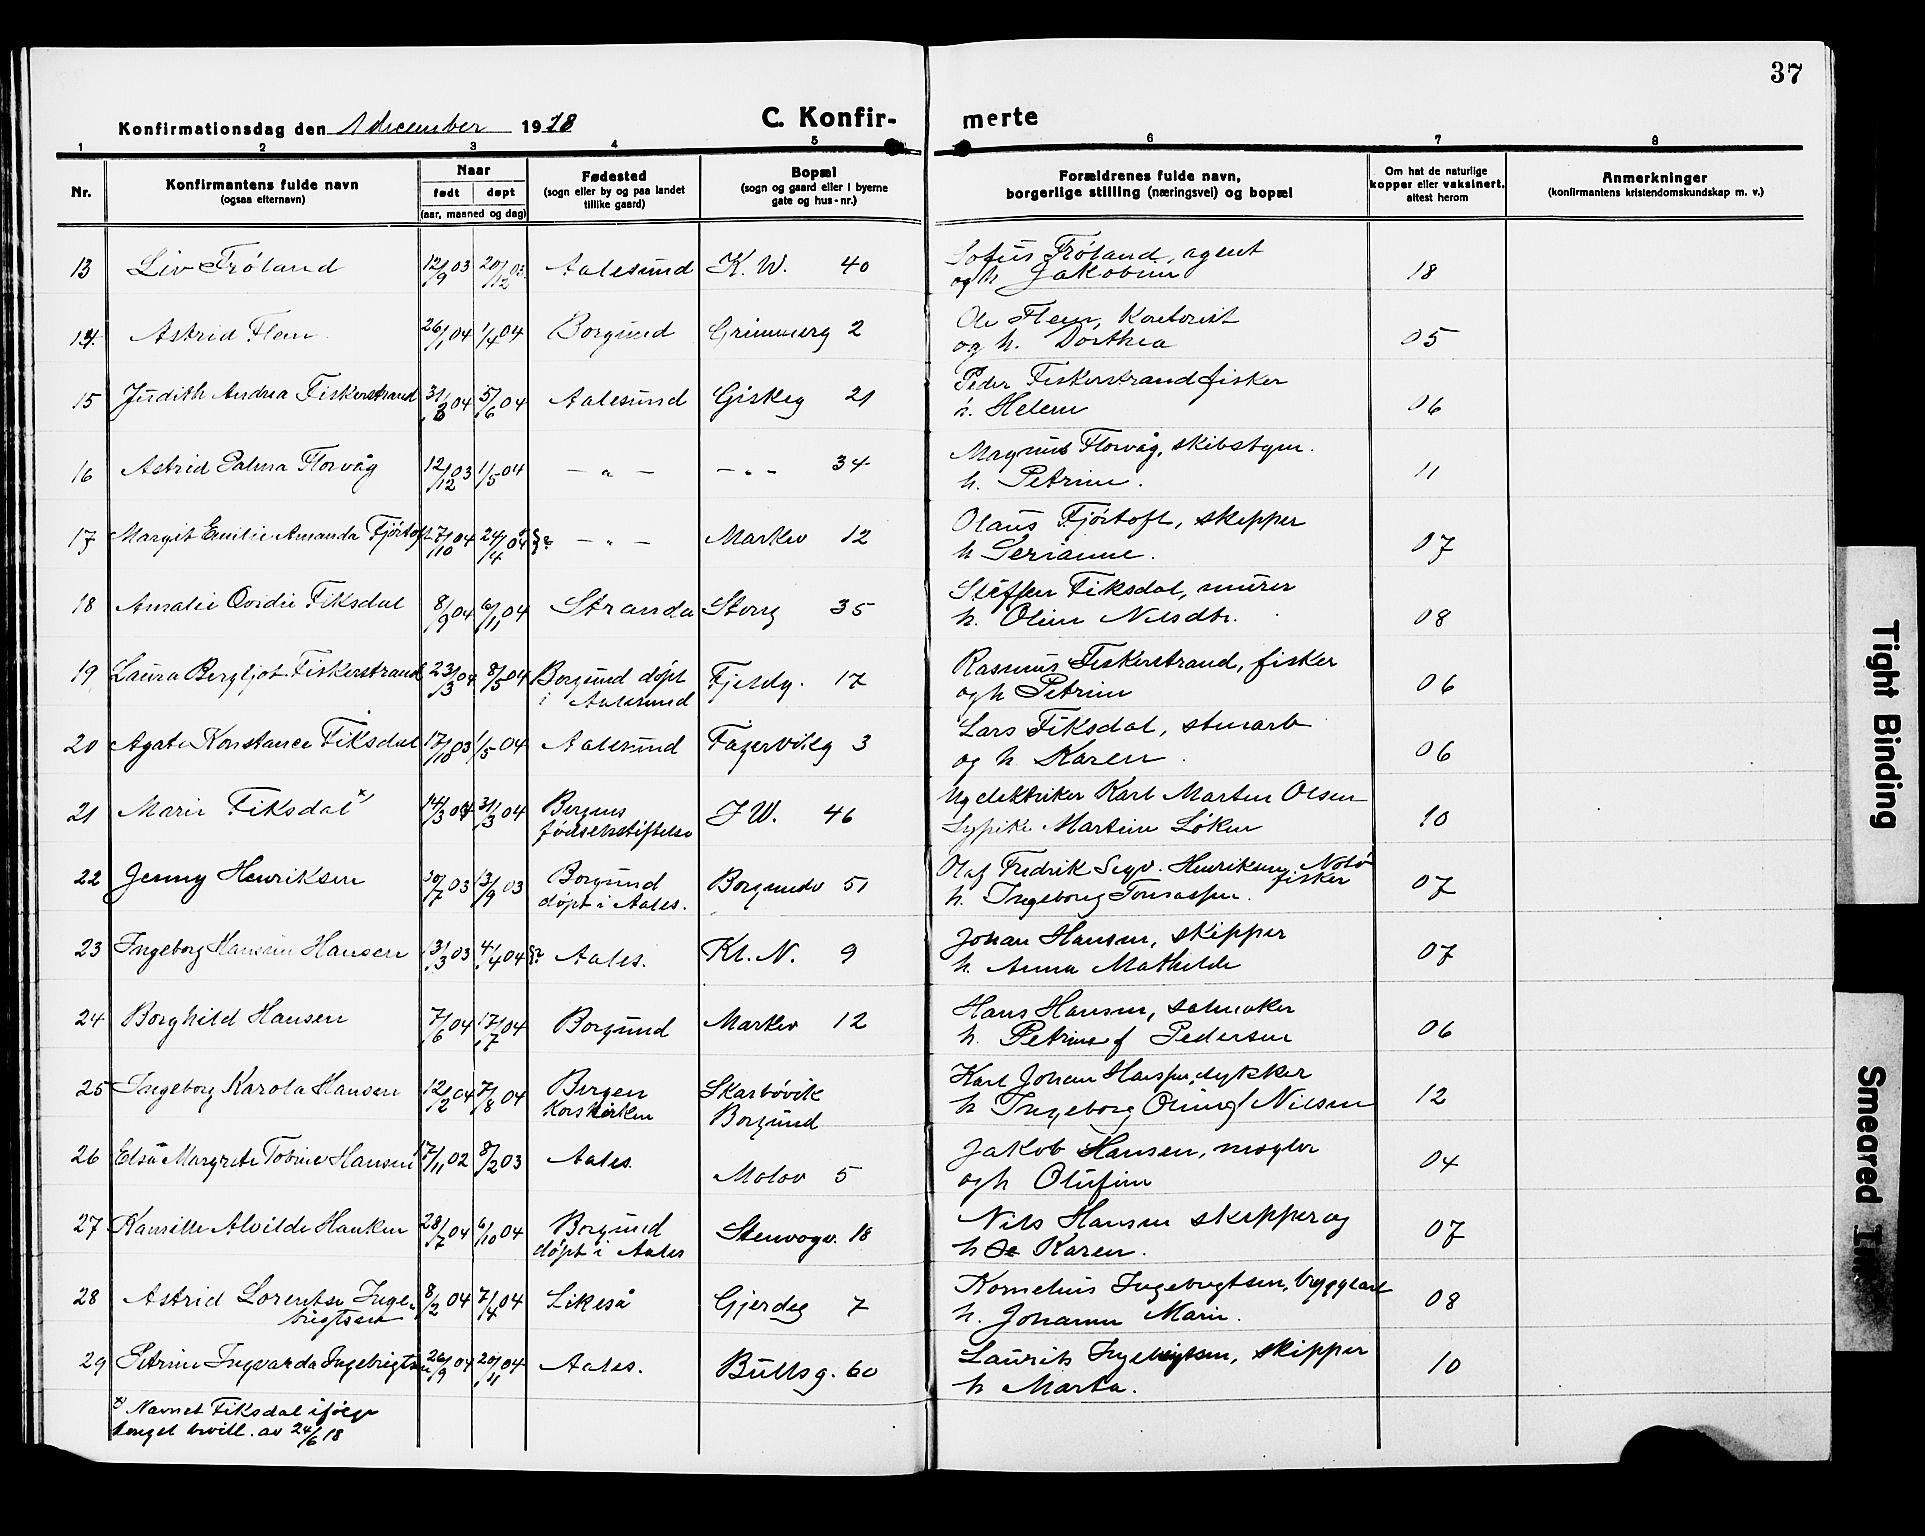 37
Konfirmationsdag den 1 december 1918
C. Konfir- merte
1 2 3 4 5 6 7 8
Nr. Konfirmantens fulde navn (ogsaa efternavn) Naar født døpt (aar, maaned og dag) Fødested (sogn eller by og paa landet tillike gaard) Bopæl (sogn og gaard eller i byerne gate og hus-nr.) Forældrenes fulde navn, borgerlige stilling (næringsvei) og bopæl Om hat de naturlige kopper eller vaksinert, attest herom Anmerkninger (konfirmantens kristendomskundskap m. v.)
13 Liv Frøland 12/9 03 20/12 03 Aalesund K. W. 40 Sofus Frøland, agent 18
og h Jakobine
14 Astrid Flem 26/1 04 1/4 04 Borgund Grimmerg 2 Ole Flem, 05
og h. Dorthea
15 Judith Andrea Fiskerstrand 31/3 04 5/6 04 Aalesund Giskeg 21 Peder Fiskerstrand fisker 06
h. Helene
16 Astrid Palma Florvåg 12/12 03 1/5 04 — „ — — „ — 34 Magnus Florvåg, skibsbygm. 11
h. Petrine.
17 Margit Emilie Amanda Fjørtoft 17/10 04 24/4 04 §? — „ — Markv 12 Olaus Fjørtoft, skipper 07
h Serianne.
18 Amalie Ovidie Fiksdal 8/9 04 6/11 04 Stranda Storg 35 Steffen Fiksdal, murer 08
h. Oline Nilsdtr.
19 Laura Bergljot Fiskerstrand 23/3 04 8/5 04 Borgund døpt Fjeldg. 17 Rasmus Fiskerstrand, fisker 06
i Aalesund og h Petrine
20 Agate Konstance Fiksdal 17/10 03 1/5 04 Aalesund Fagervikg 3 Lars Fiksdal, stuearb 06
og h Karen.
21 Marie Fiksdal x) 14/3 04 31/3 04 Bergens J W. 46 Ug elektriker Karl Martin Olsen 10
fødselsstiftelse Sypike Martine Løken
22 Jenny Henriksen 30/7 03 13/9 03 Borgund Borgundv 51 Olaf Fredrik Segv. Henriksen, fisker 07
døpt i Aales. h. Ingeborg
23 Ingeborg Hansine Hansen 13/3 03 4/4 04 §? Aales. Kl. N. 9 Johan Hansen, skipper 07
h. Anna Mathilde
24 Borghild Hansen 7/6 04 17/7 04 Borgund Markv 12 Hans Hansen, salmaker 06
h. Petrine f Pedersen
25 Ingeborg Karola Hansen 12/2 04 7/8 04 Bergen Skarbøvik Karl Johan Hansen, dykker 12
Korskirken Borgund h Ingeborg Oline f Nilsen
26 Elsa Margrete Tobine Hansen 17/11 02 8/2 03 Aales. Molov 5 Jakob Hansen, megler 04
og h Olufine
27 Kamille Alvilde Hanken 28/7 04 6/10 04 Borgund Stenvogv. 18 Nils Hansen skipper og 07
døpt i Aales h Karen.
28 Astrid Lorentse Inge- 8/2 04 7/4 04 Likeså Gjerdeg 7 Kornelius Ingebrigtsen, bryggearb 08
brigtsen h. Johanne Marie.
29 Petrine Ingvarda Ingebrigtsen 26/9 04 20/11 04 Aales. Bullsg. 60 Laurits Ingebrigtsen, skipper 10
h Marta.
x) Navnet Fiksdal ifølge
kongel bevill. av 24/6 18
Tight Binding
Smeared Ink